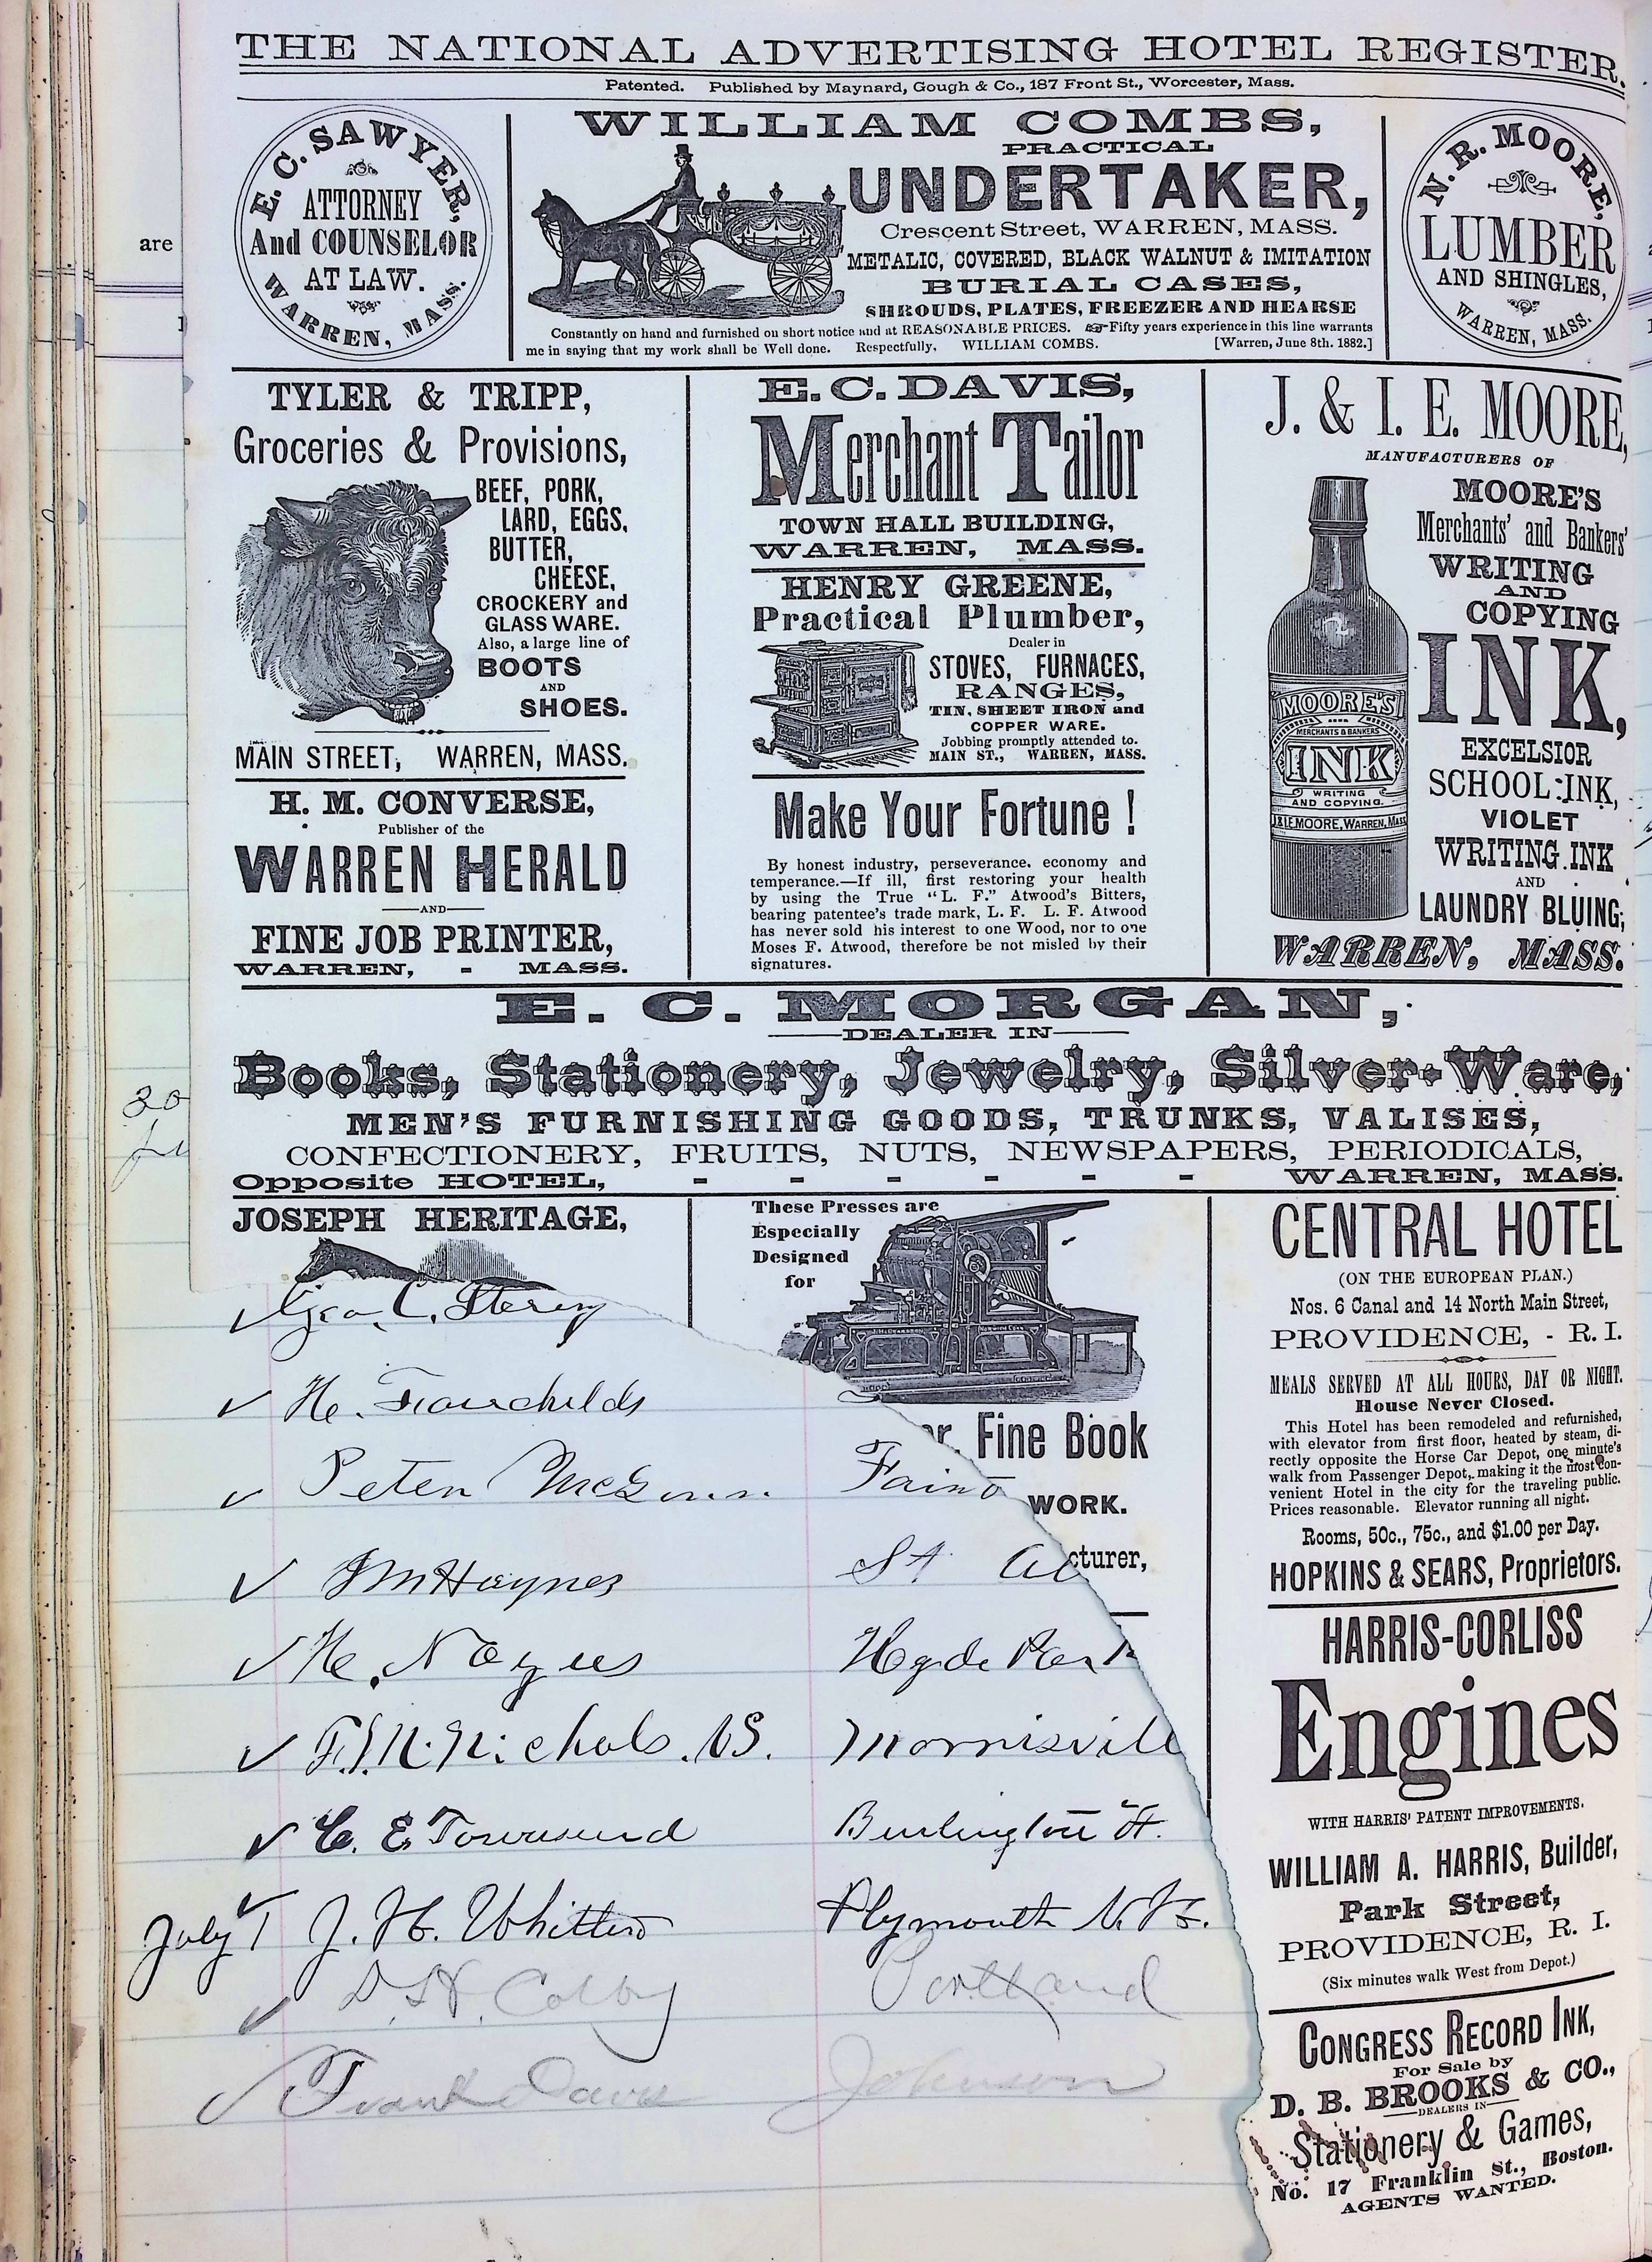 THE NATIONAL ADVERTISING HOTEL REGISTER.
Patented. Published by Maynard, Gough & Co., 187 Front St., Worcester, Mass.
E. C. SAWYER,
ATTORNEY
And COUNSELOR
AT LAW.
WARREN, MASS.
WILLIAM COMBS,
PRACTICAL
UNDERTAKER,
Crescent Street, WARREN, MASS.
METALIC, COVERED, BLACK WALNUT & IMITATION
BURIAL CASES,
SHROUDS, PLATES, FREEZER AND HEARSE
Constantly on hand and furnished on short notice and at REASONABLE PRICES. ☞Fifty years experience in this line warrants
me in saying that my work shall be Well done. Respectfully, WILLIAM COMBS. [Warren, June 8th. 1882.]
N. R. MOORE,
LUMBER
AND SHINGLES,
WARREN, MASS.
are
TYLER & TRIPP,
Groceries & Provisions,
BEEF, PORK,
LARD, EGGS,
BUTTER,
CHEESE,
CROCKERY and
GLASS WARE.
Also, a large line of
BOOTS
AND
SHOES.
MAIN STREET, WARREN, MASS.
H. M. CONVERSE,
Publisher of the
WARREN HERALD
AND
FINE JOB PRINTER,
WARREN, - MASS.
E. C. DAVIS,
Merchant Tailor
TOWN HALL BUILDING,
WARREN, MASS.
HENRY GREENE,
Practical Plumber,
Dealer in
STOVES, FURNACES,
RANGES,
TIN, SHEET IRON and
COPPER WARE.
Jobbing promptly attended to.
MAIN ST., WARREN, MASS.
Make Your Fortune !
By honest industry, perseverance, economy and
temperance.—If ill, first restoring your health
by using the True "L. F." Atwood's Bitters,
bearing patentee's trade mark, L. F. L. F. Atwood
has never sold his interest to one Wood, nor to one
Moses F. Atwood, therefore be not misled by their
signatures.
J. & I. E. MOORE,
MANUFACTURERS OF
MOORE'S
Merchants' and Bankers'
WRITING
AND
COPYING
INK,
EXCELSIOR
SCHOOL INK,
VIOLET
WRITING INK
AND
LAUNDRY BLUING,
WARREN, MASS.
MOORE'S
MERCHANTS & BANKERS
INK
WRITING
AND COPYING.
J & I.E. MOORE, WARREN, MASS
E. C. MORGAN,
DEALER IN
Books, Stationery, Jewelry, Silver-Ware,
MEN'S FURNISHING GOODS, TRUNKS, VALISES,
CONFECTIONERY, FRUITS, NUTS, NEWSPAPERS, PERIODICALS,
Opposite HOTEL, - - - - - - WARREN, MASS.
30
JOSEPH HERITAGE,
These Presses are
Especially
Designed
for
er, Fine Book
WORK.
cturer,
CENTRAL HOTEL
(ON THE EUROPEAN PLAN.)
Nos. 6 Canal and 14 North Main Street,
PROVIDENCE, - R. I.
MEALS SERVED AT ALL HOURS, DAY OR NIGHT.
House Never Closed.
This Hotel has been remodeled and refurnished,
with elevator from first floor, heated by steam, di-
rectly opposite the Horse Car Depot, one minute's
walk from Passenger Depot, making it the most con-
venient Hotel in the city for the traveling public.
Prices reasonable. Elevator running all night.
Rooms, 50c., 75c., and $1.00 per Day.
HOPKINS & SEARS, Proprietors.
HARRIS-CORLISS
Engines
WITH HARRIS' PATENT IMPROVEMENTS.
WILLIAM A. HARRIS, Builder,
Park Street,
PROVIDENCE, R. I.
(Six minutes walk West from Depot.)
CONGRESS RECORD INK,
For Sale by
D. B. BROOKS & CO.,
DEALERS IN
Stationery & Games,
No. 17 Franklin St., Boston.
AGENTS WANTED.
✓ Geo. C.
✓ H. Fairchilds
✓ Peter
✓ J M Haynes St
✓ H. Noyes Hyde Park
✓ Nichols Morrisvill
✓ C. E Townsend Burlington Vt.
July 1 ✓ J. H. Whitten Plymouth N.H.
✓ Colby Portland
✓ Frank Davis Johnson